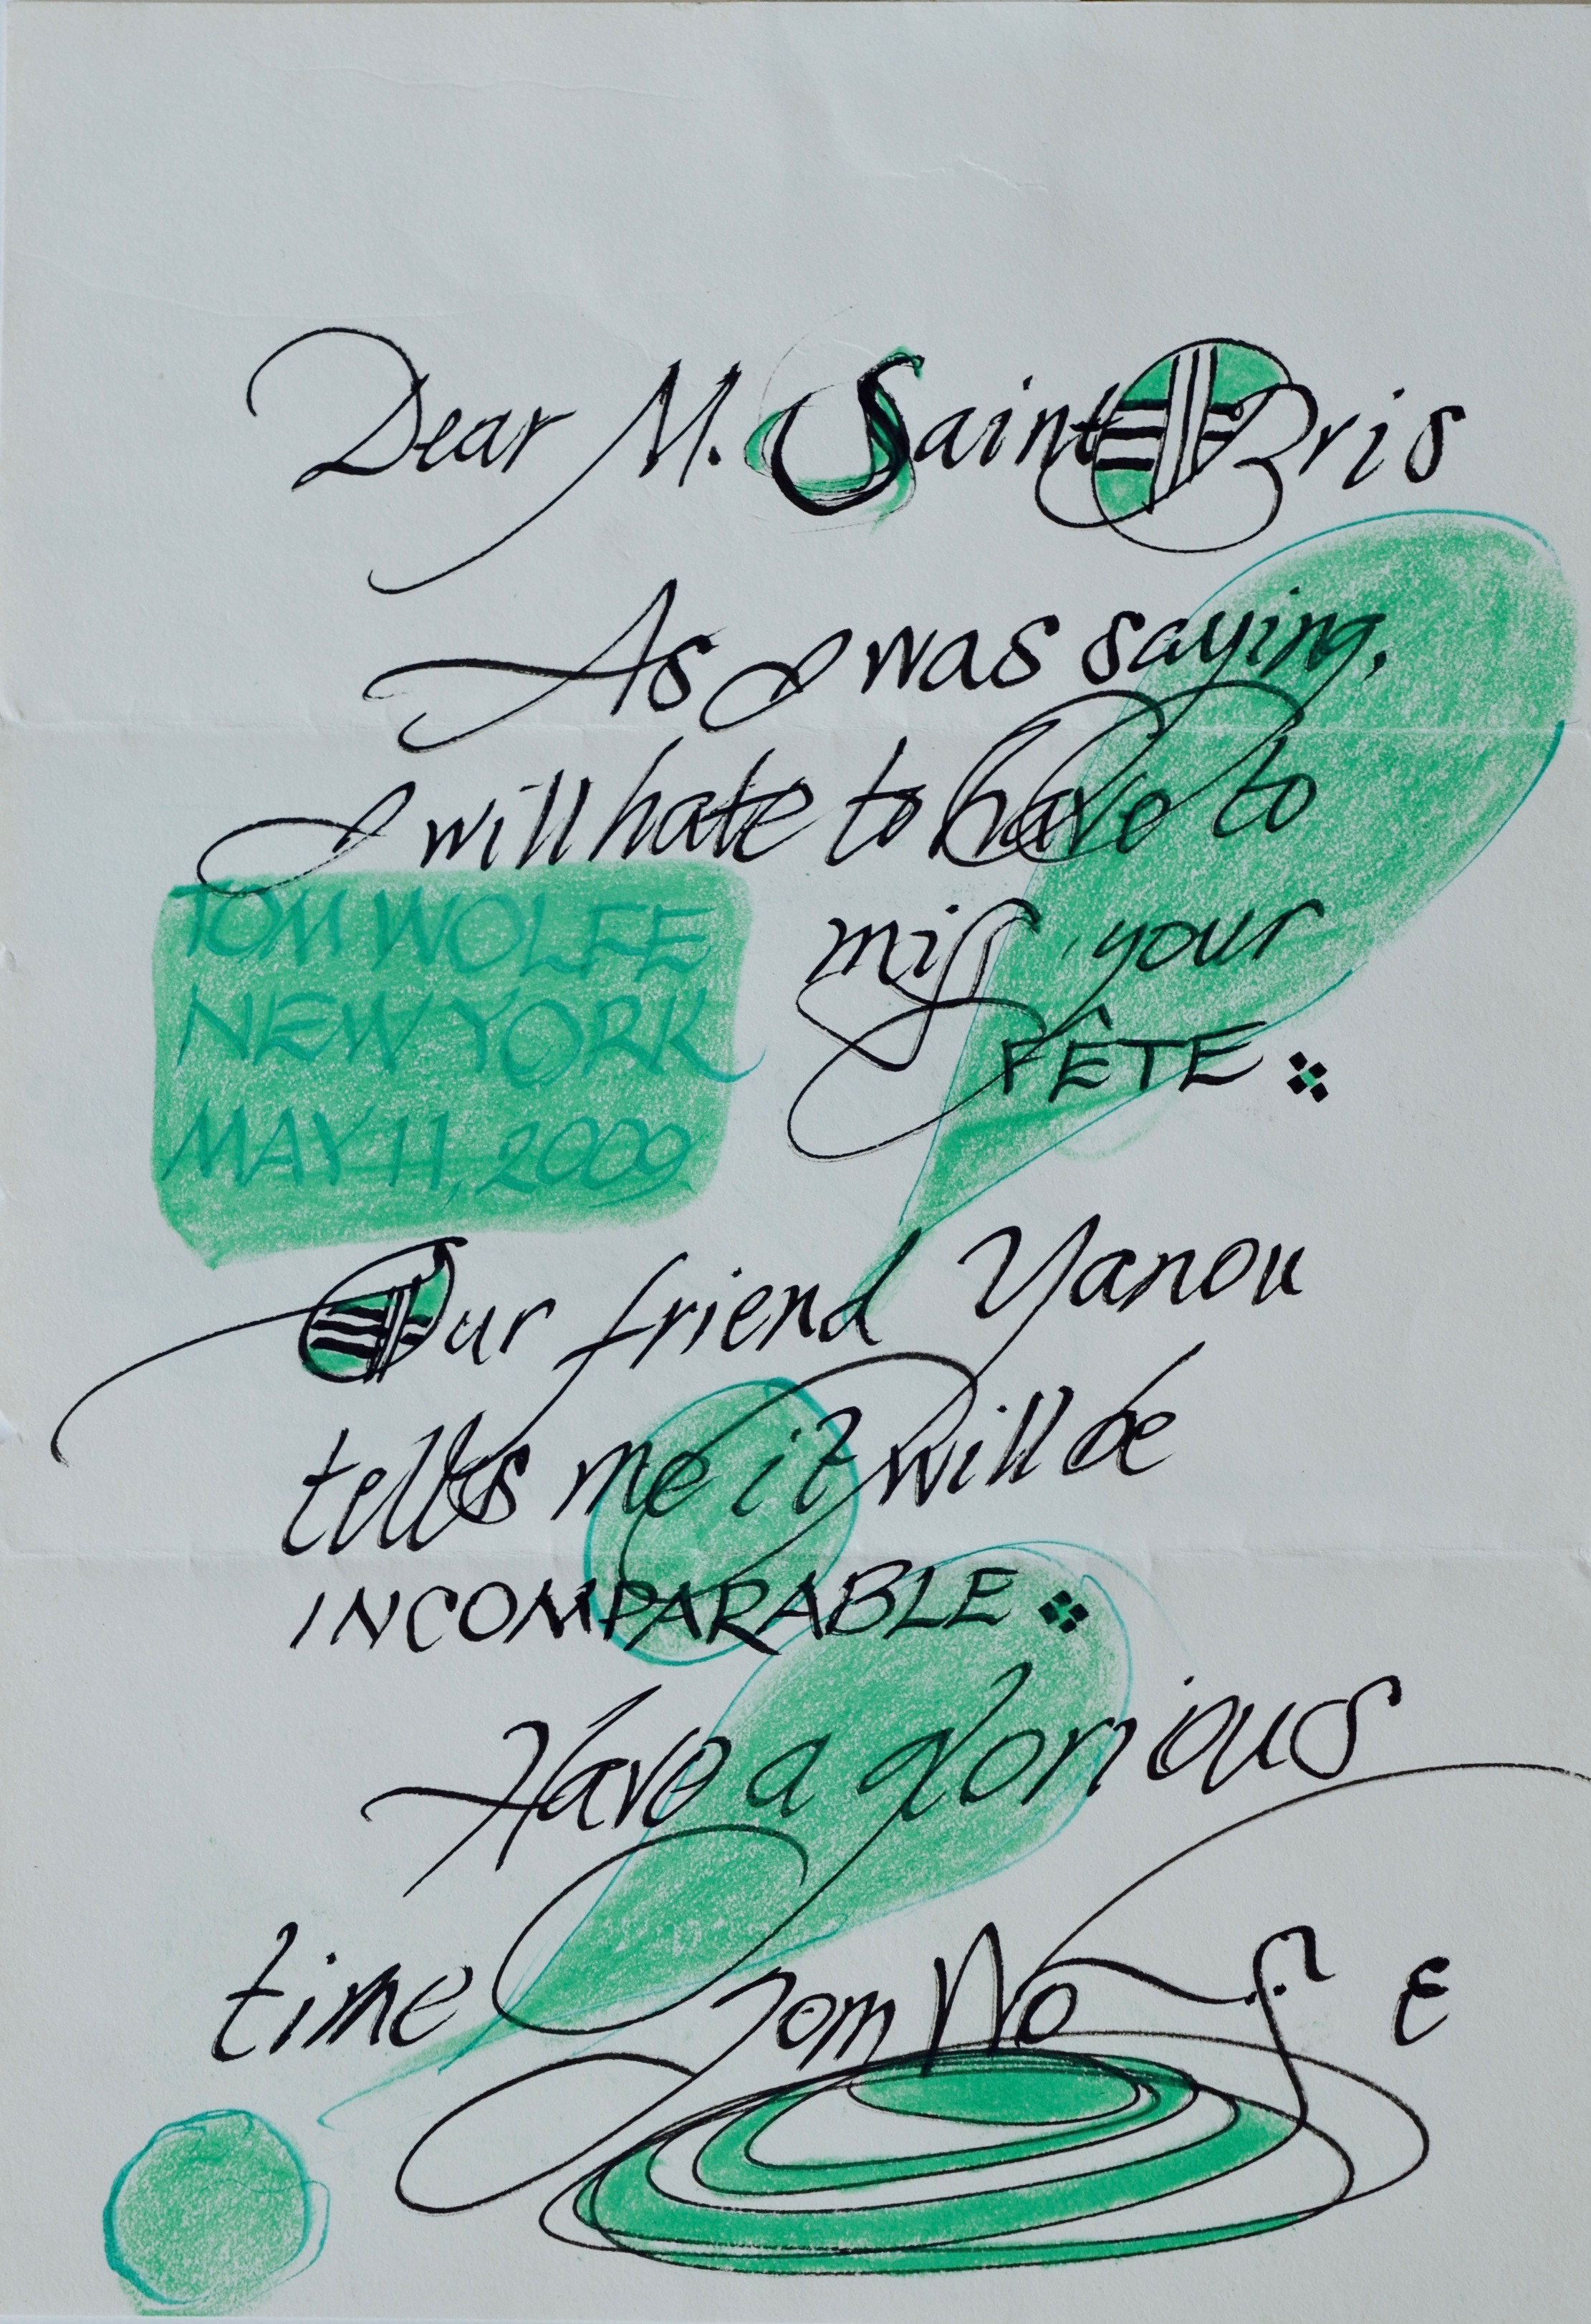 Dear M. Saint Bris
As I was saying,
I will hate to have to
miss your
FÊTE
TOM WOLFE
NEW YORK
MAY 11, 2009.
Our friend Yanou
tells me it will be
INCOMPARABLE
Have a glorious
time
Tom Wolfe